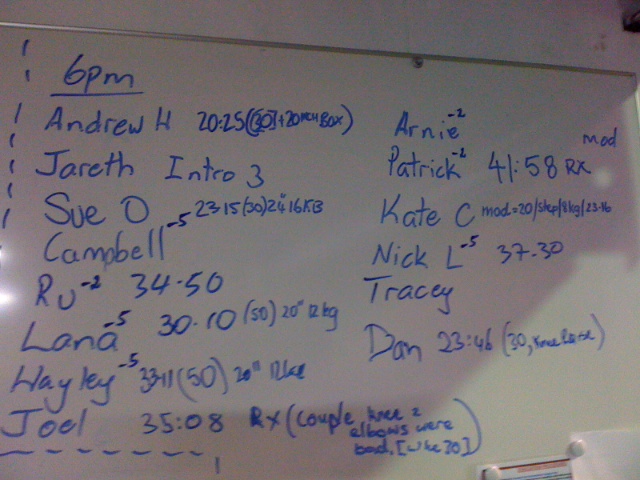 6pm
Andrew H 20:25 ([30] + 20 inch Box)
Jareth Intro 3
Sue O 23.15 (30) 24" 16KB
Campbell -5
Ru -2 34.50
Lana -5 30.10 (50) 20" 12kg
Hayley -5 33.11 (50) 20" 12kg
Joel 35:08 Rx (couple knee 2
elbows were
bad. [like 30])
Arnie -2
Patrick -2 41:58 RX mod
Kate C mod=20/step/8kg/23.16
Nick L -5 37.30
Tracey
Dan 23:46 (30, knee Raise)